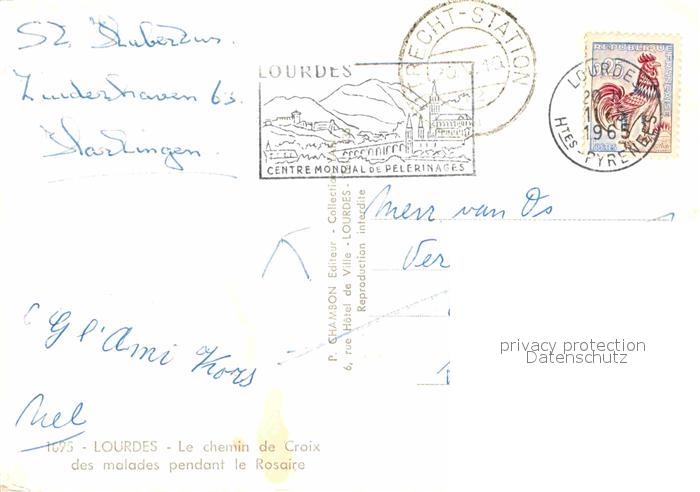 St. Hubertus.
Zuiderhaven 63
Harlingen.
LOURDES
CENTRE MONDIAL DE PELERINAGES
UTRECHT-STATION
REPUBLIQUE FRANÇAISE
LOURDES
1965
Htes-PYRENEES
P. CHAMBON Editeur - Collection
6, rue Hôtel de Ville - LOURDES -
Reproduction interdite
Menr van Os
Ver
G l'Ami Kors
Nel
privacy protection
Datenschutz
1695 - LOURDES - Le chemin de Croix
des malades pendant le Rosaire